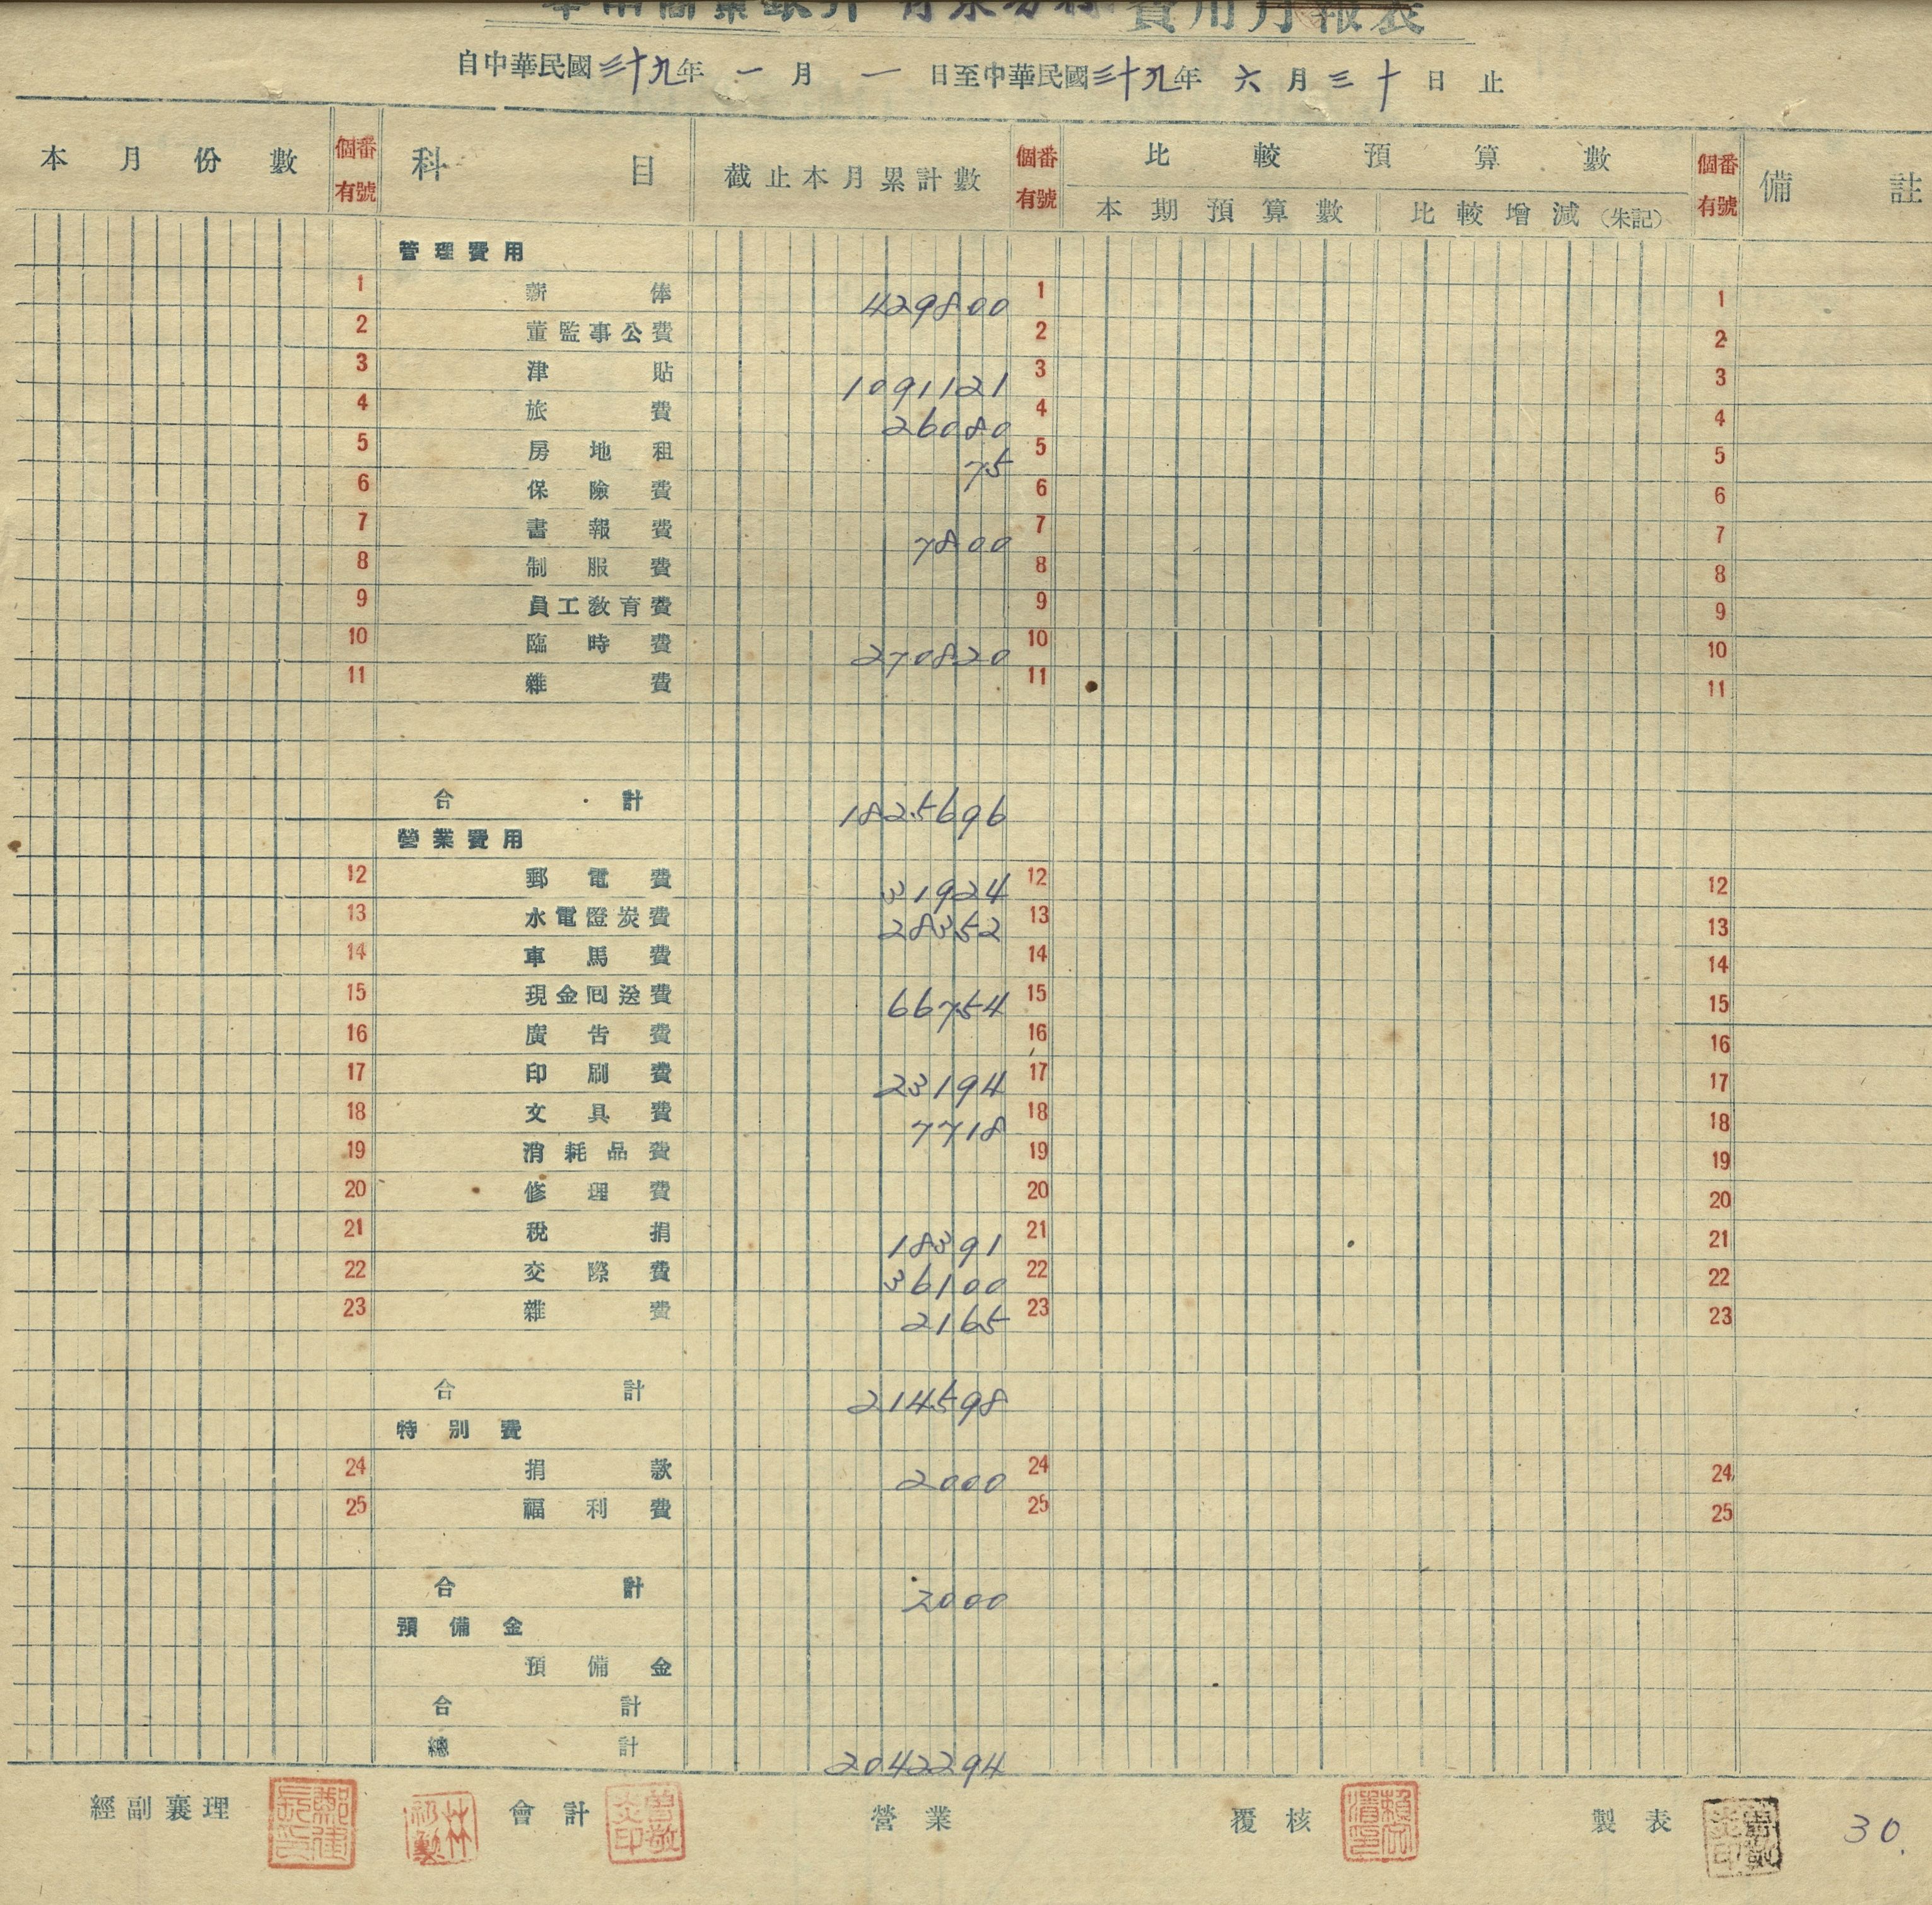 費用月報表
自中華民國三十九年 一 月 一 日至中華民國三十九年 六 月 三十 日 止
本月份數 個有番號 科目 截止本月累計數 個有番號 比較預算數 個有番號 備註
本期預算數 比較增減(朱記)
管理費用
1 薪俸 429800 1 1
2 董監事公費 2 2
3 津貼 1091121 3 3
4 旅費 26080 4 4
5 房地租 75 5 5
6 保險費 6 6
7 書報費 7800 7 7
8 制服費 8 8
9 員工教育費 9 9
10 臨時費 270820 10 10
11 雜費 11 11
合計 1825696
營業費用
12 郵電費 31924 12 12
13 水電燈炭費 28352 13 13
14 車馬費 14 14
15 現金回送費 66754 15 15
16 廣告費 16 16
17 印刷費 23194 17 17
18 文具費 7718 18 18
19 消耗品費 19 19
20 修理費 20 20
21 稅捐 18391 21 21
22 交際費 36100 22 22
23 雜費 2165 23 23
合計 214598
特別費
24 捐款 2000 24 24
25 福利費 25 25
合計 2000
預備金
預備金
合計
總計 2042294
經副襄理 會計 營業 覆核 製表 30.